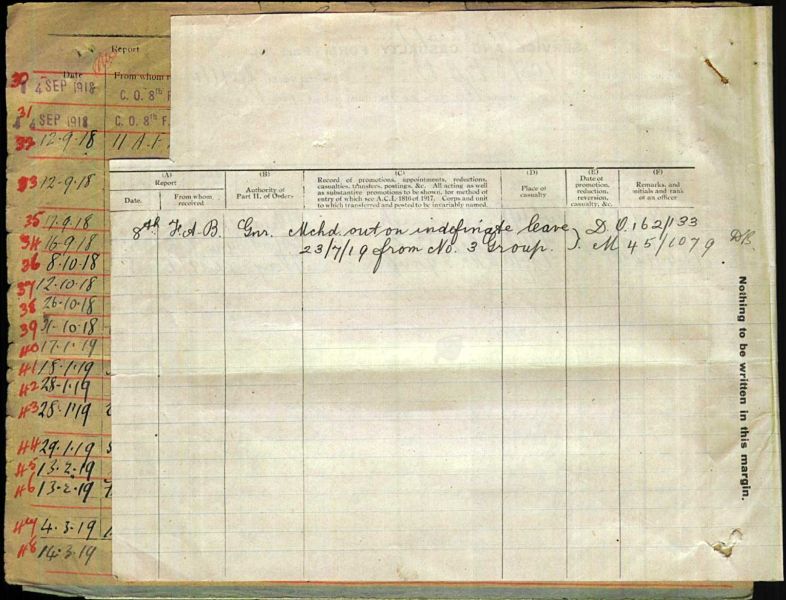 Report
Date
From whom
30
4 SEP 1918
C. O. 8th F
31
4 SEP 1918
C. O. 8th F.
32 12-9-18
33 12-9-18
35 17-9-18
34 16-9-18
36 8-10-18
37 12-10-18
38 26-10-18
39 31-10-18
40 17-1-19
41 18-1-19
42 28-1-19
43 28-1-19
44 29-1-19
45 13-2-19
46 13-2-19
47 4-3-19
48 14-3-19
(A)
Report
Date.
From whom received
(B)
Authority of Part II. of Orders
(C)
Record of promotions, appointments, reductions,
casualties, transfers, postings, &c. All acting as well
as substantive promotions to be shown, for method of
entry of which see A.C.I. 1816 of 1917. Corps and unit
to which transferred and posted to be invariably named.
(D)
Place of casualty
(E)
Date of promotion, reduction, reversion, casualty, &c.
(F)
Remarks, and initials and rank of an officer
8th F.A.B. Gnr. Mchd. out on indefinite leave D.O. 162/133
23/7/19 from No. 3 Group. M 45/1079
Nothing to be written in this margin.